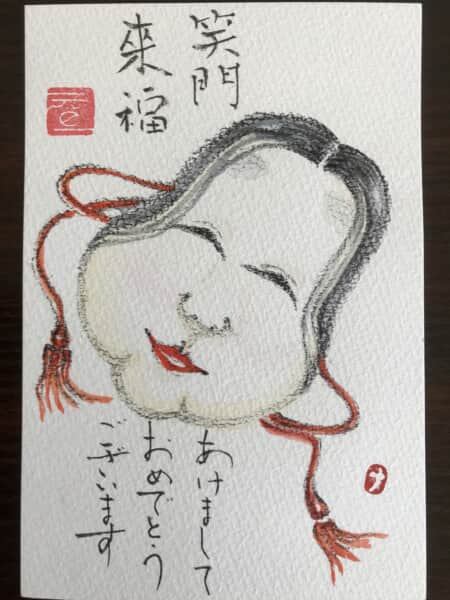 笑門
來福
あけまして
おめでとう
ございます